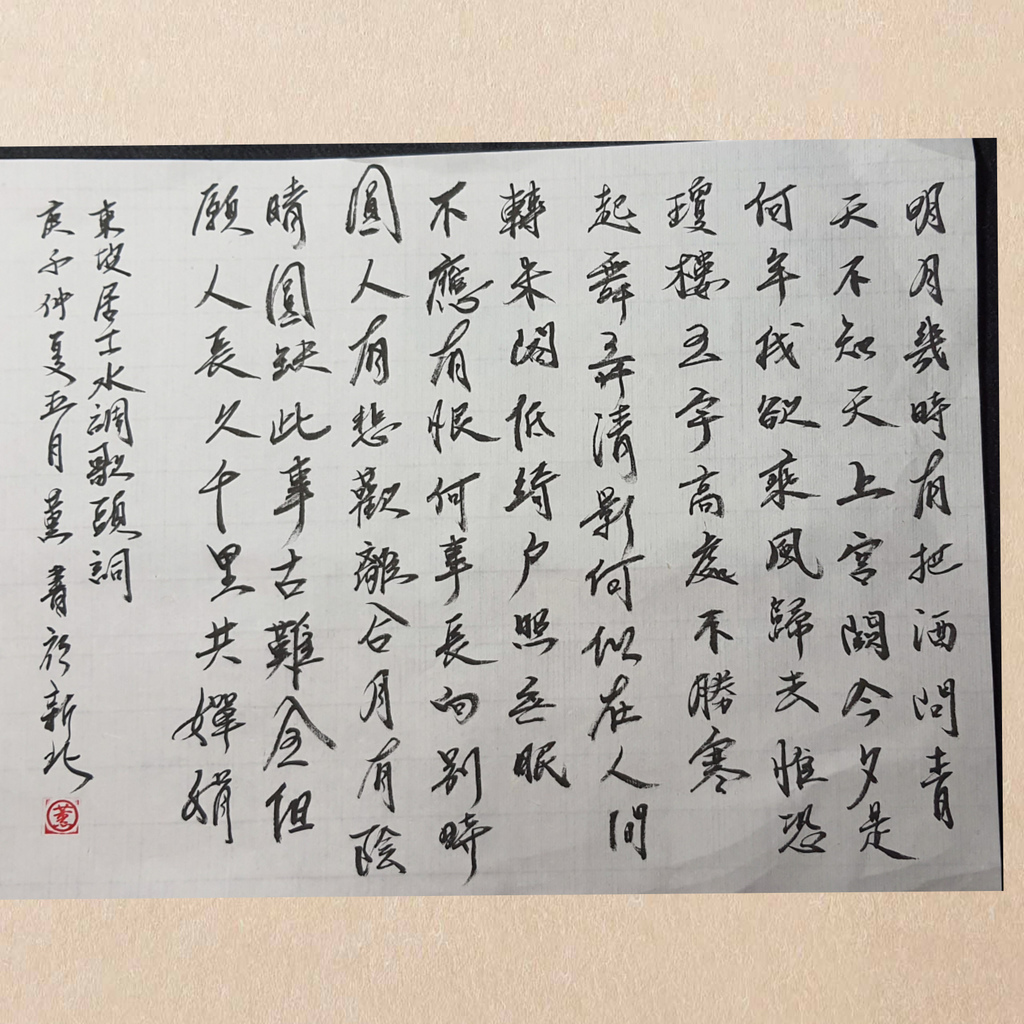 明月幾時有把酒問青
天不知天上宮闕今夕是
何年我欲乘風歸去惟恐
瓊樓玉宇高處不勝寒
起舞弄清影何似在人間
轉朱閣低綺户照無眠
不應有恨何事長向别時
圓人有悲歡離合月有陰
晴圓缺此事古難全但
願人長久千里共嬋娟
東坡居士水調歌頭詞
庚子仲夏五月薰書於新北
薰